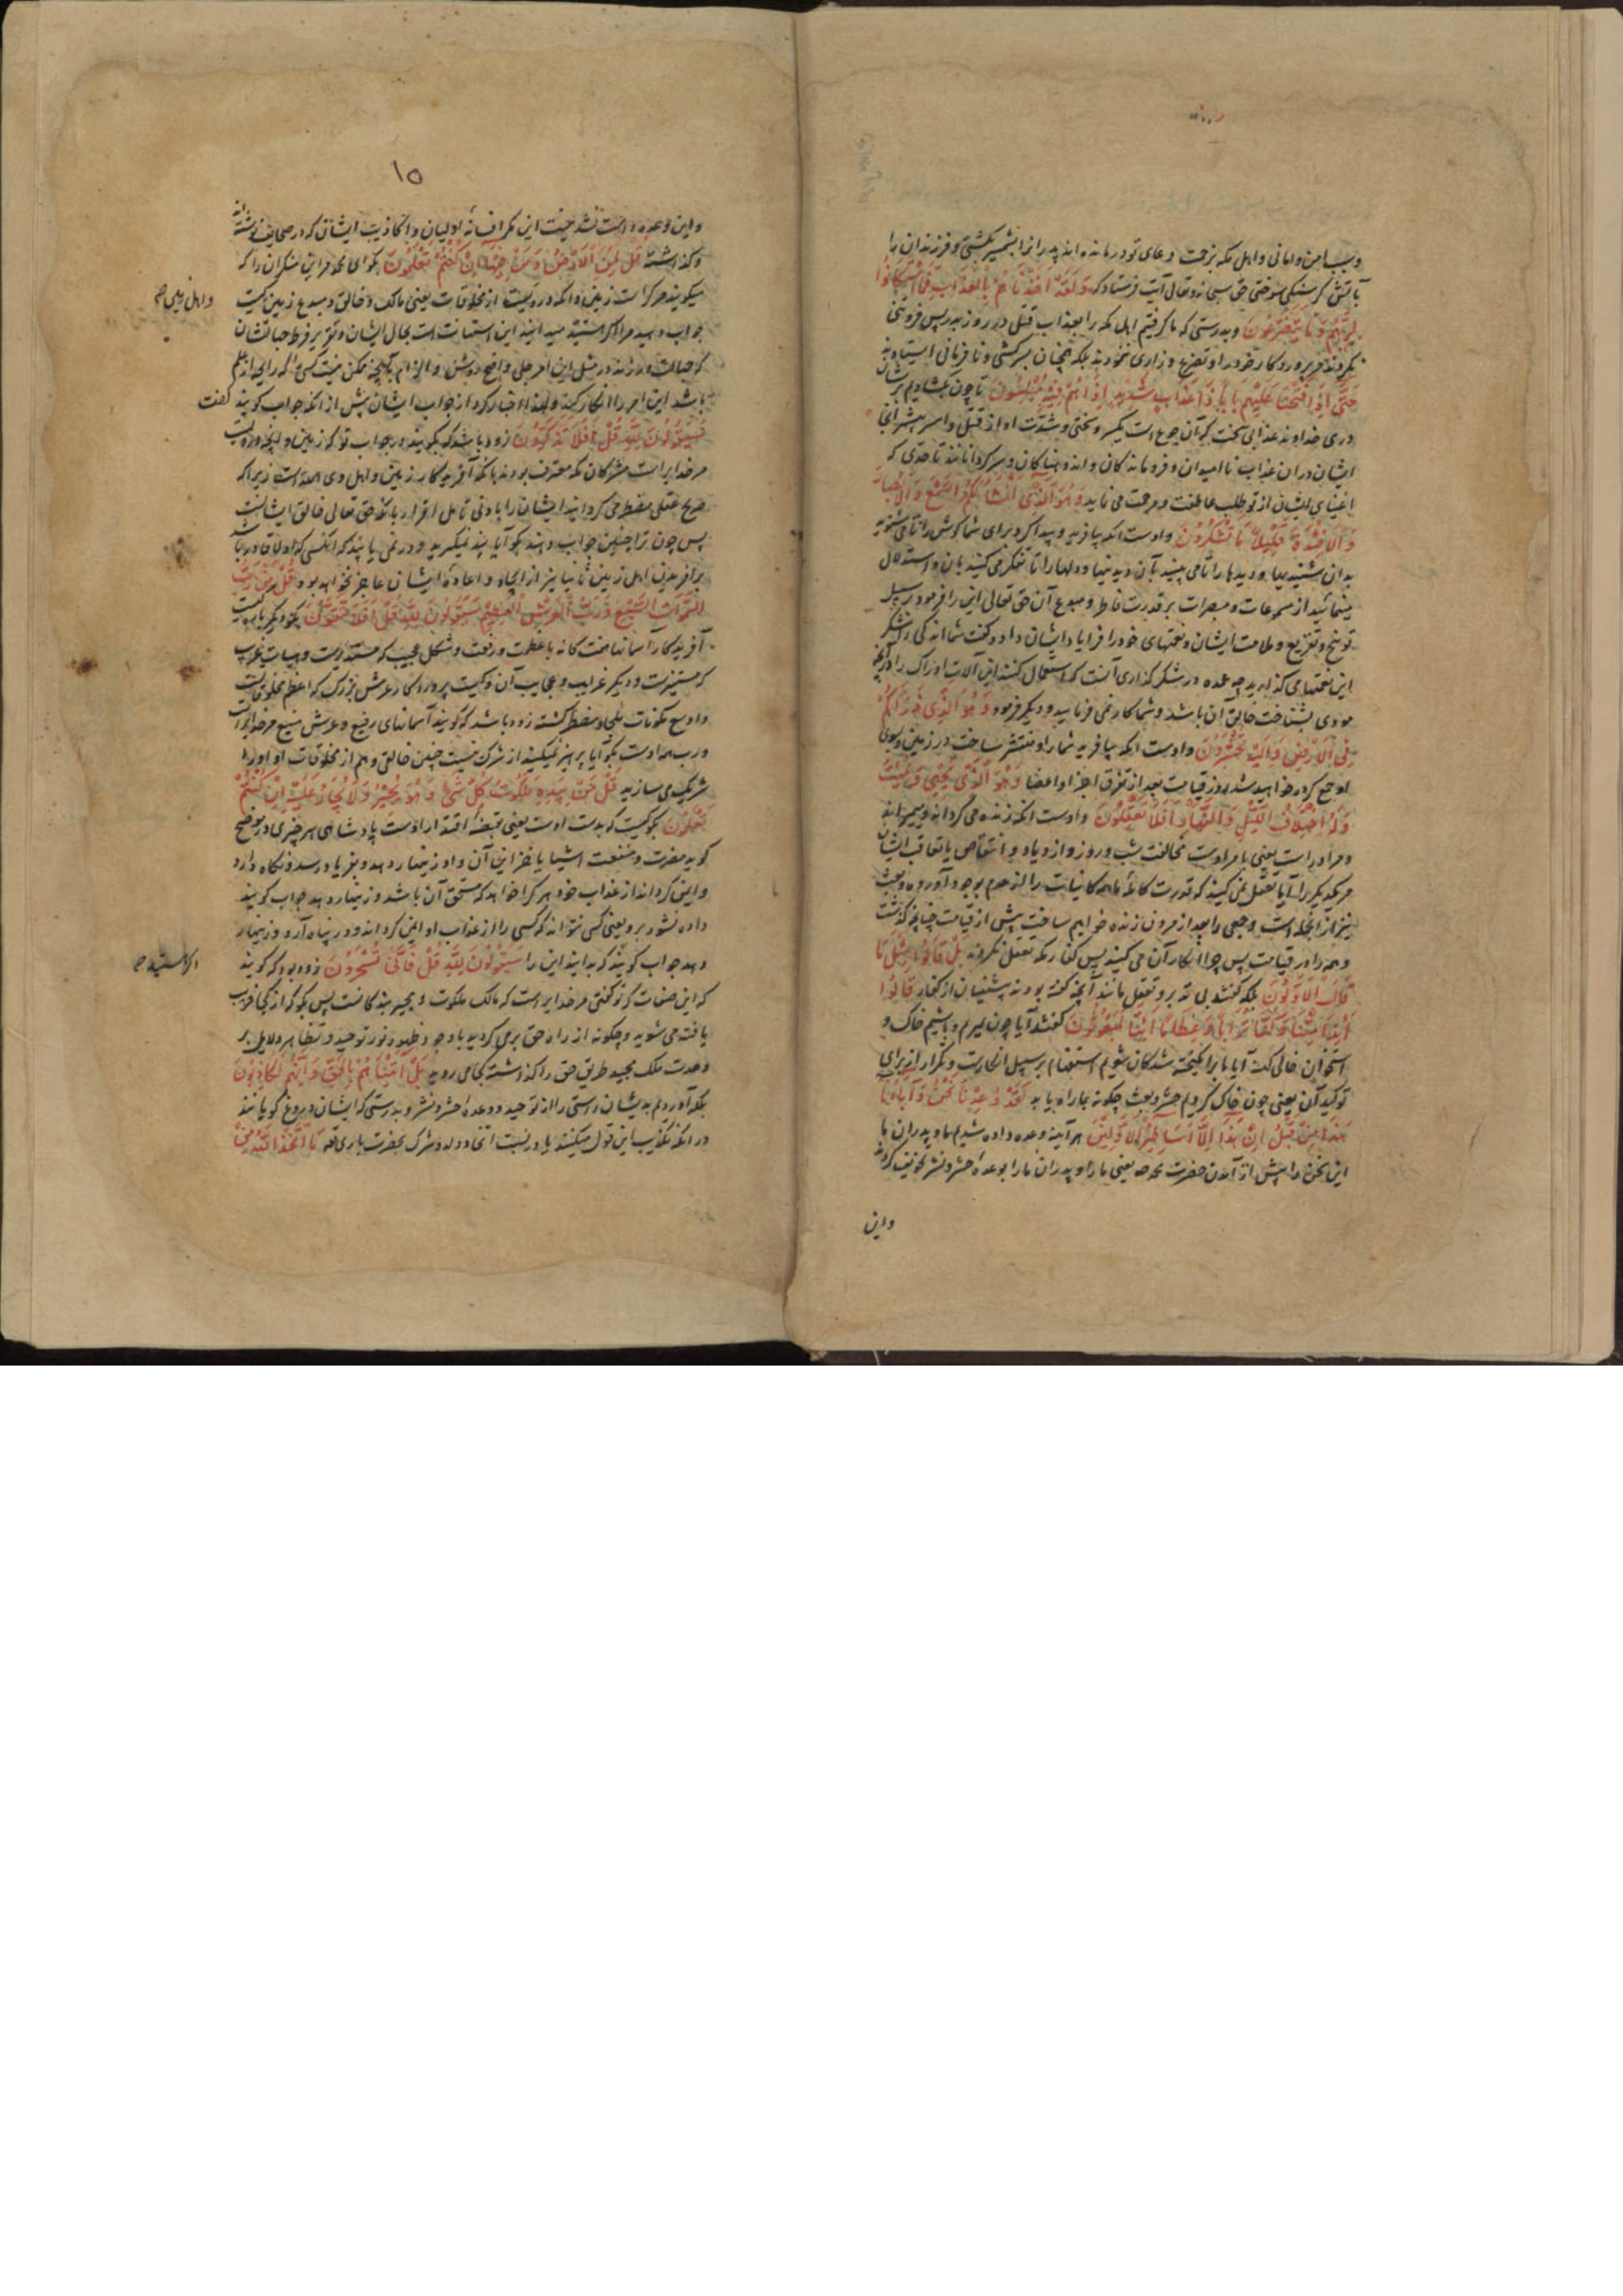 و سبب امن و امانی و اهل مکه بزحمت دعای تو درمانده اند پدرانرا بشمشیر بکشتی و فرزندان را
بآتش گرسنگی سوختی حق سبحانه و تعالی آیت فرستاد که وَلَقَدْ أَخَذْنَاهُمْ بِالْعَذَابِ فَمَا اسْتَكَانُوا
لِرَبِّهِمْ وَمَا يَتَضَرَّعُونَ و بدرستی که ما گرفتیم اهل مکه را بعذاب قتل در روز بدر پس فروتنی
نکردند مر پروردگار خود را و تضرع و زاری ننمودند بلکه همچنان بر سرکشی و نافرمانی ایستاده اند
حَتَّى إِذَا فَتَحْنَا عَلَيْهِمْ بَابًا ذَا عَذَابٍ شَدِيدٍ إِذَا هُمْ فِيهِ مُبْلِسُونَ تا چون بگشادیم بر ایشان
دری خداوند عذابی سخت که آن جوع است یکسر و سختی و شدت او از قتل و اسر بیشتر انجا
ایشان در ان عذاب ناامیدان و فروماندگان و اندوهناکان و سرگردانانند تا حدی که
اغنیای ایشان از تو طلب عاطفت و مرحمت می نمایند وَهُوَ الَّذِي أَنْشَأَ لَكُمُ السَّمْعَ وَالْأَبْصَارَ
وَالْأَفْئِدَةَ قَلِيلًا مَا تَشْكُرُونَ و اوست انکه بیافرید و پیدا کرد برای شما گوش را تا می شنوید
بدان شنیدنیها و دیدها را تا می بینید بآن دیدنیها و دلها را تا تفکر می کنید بان و استدلال
مینمائید از مسموعات و مبصرات بر قدرت فاطر و مبدع آن حق تعالی این را فرمود بر سبیل
توبیخ و تقریع و ملامت ایشان و نعمتهای خود را فرا یاد ایشان داد و گفت شما اندکی را شکر
این نعمتها می گذارید چه عمده در شکر گذاری آنست که استعمال کنند این آلات ادراک را در آنچه
مودی بشناخت خالق ان باشد و شما کار نمی فرمایید و دیگر فرمود وَهُوَ الَّذِي ذَرَأَكُمْ
فِي الْأَرْضِ وَإِلَيْهِ تُحْشَرُونَ و اوست انکه بیافرید شما را و منتشر ساخت در زمین و بسوی
او جمع کرده خواهید شد روز قیامت بعد از تفرق اجزا و اعضا وَهُوَ الَّذِي يُحْيِي وَيُمِيتُ
وَلَهُ اخْتِلَافُ اللَّيْلِ وَالنَّهَارِ أَفَلَا تَعْقِلُونَ و اوست انکه زنده می گرداند و میمیراند
و مر او راست یعنی بامر اوست مخالفت شب و روز و ازدیاد و انتقاص یا تعاقب ایشان
مر یکدیگر را آیا تعقل نمی کنید که قدرت کامله ما همه کاینات را از عدم بوجود آورده و بعث
نیز از انجمله است و جمعی را بعد از مردن زنده خواهیم ساخت پیش از قیامت چنانچه گذشت
و همه را در قیامت پس چرا انکار آن می کنید پس کفار مکه تعقل نکردند بَلْ قَالُوا مِثْلَ مَا
قَالَ الْأَوَّلُونَ بلکه گفتند بی تدبر و تعقل مانند آنچه گفته بودند پیشینیان از کفار قَالُوا
أَئِذَا مِتْنَا وَكُنَّا تُرَابًا وَعِظَامًا أَئِنَّا لَمَبْعُوثُونَ گفتند آیا چون بمیریم و باشیم خاک و
استخوان خالی گشته آیا ما برانگیخته شدگان شویم استفهام بر سبیل انکارست و تکرار از برای
توکید آن یعنی چون خاک گردیم حشر و بعث چگونه بما راه یابد لَقَدْ وُعِدْنَا نَحْنُ وَآبَاؤُنَا
هَذَا مِنْ قَبْلُ إِنْ هَذَا إِلَّا أَسَاطِيرُ الْأَوَّلِينَ هر آینه وعده داده شدیم ما و پدران ما
این سخن را پیش از آمدن حضرت محمد ص یعنی ما را و پدران ما را بوعده حشر و نشر تخویف کردند
و این
۱۵
و این وعده راست نشد نیست این مگر افسانه اولیان و اکاذیب ایشان که در صحایف نوشته اند
و گذاشته قُلْ لِمَنِ الْأَرْضُ وَمَنْ فِيهَا إِنْ كُنْتُمْ تَعْلَمُونَ بگو ای محمد مر این منکران را که
میگویند مر کراست زمین و انکه در ویست از مخلوقات یعنی مالک و خالق و مبدع زمین کیست
و اهل زمین ص
جواب دهید مرا اگر هستید میدانید این استهانت است بحال ایشان و تقریر فرط جهالتشان
که جهالت ورزند در مثل این امر جلی واضح روشن و الزام بآنچه ممکن نیست کسی را که رایحه از علم
باشد این امر را انکار کند و لهذا اخبار کرد از جواب ایشان پیش از انکه جواب گویند گفت
سَيَقُولُونَ لِلَّهِ قُلْ أَفَلَا تَذَكَّرُونَ زود باشد که بگویند در جواب تو که زمین و آنچه دروست
مر خدایراست مشرکان مکه معترف بودند بانکه آفریدگار زمین و اهل وی اللّه است زیرا که
صریح عقل مضطر می گرداند ایشان را بادنی تامل اقرار بانکه حق تعالی خالق ایشانست
پس چون ترا چنین جواب دهند بگو آیا پند نمیگیرید و در نمی یابید که انکسی که اولا قادر باشد
بر افریدن اهل زمین ثانیا نیز از ایجاد و اعاده ایشان عاجز نخواهد بود قُلْ مَنْ رَبُّ
السَّمَوَاتِ السَّبْعِ وَرَبُّ الْعَرْشِ الْعَظِيمِ سَيَقُولُونَ لِلَّهِ قُلْ أَفَلَا تَتَّقُونَ بگو دیگر باره کیست
آفریدگار آسمانها هفت گانه با عظمت و رفعت و شکل عجیب که مستدیرست و هیات غریب
که مستنیرست و دیگر غرایب و عجایب آن و کیست پروردگار عرش بزرگ که اعظم مخلوقاتست
و اوسع مکونات ملجا و مضطر گشته زود باشد که گویند آسمانهای رفیع و عرش منیع مر خدایراست
و رب همه اوست بگو آیا پرهیز نمیکنید از شرک نسبت چنین خالق و هم از مخلوقات او او را
شریک می سازید قُلْ مَنْ بِيَدِهِ مَلَكُوتُ كُلِّ شَيْءٍ وَهُوَ يُجِيرُ وَلَا يُجَارُ عَلَيْهِ إِنْ كُنْتُمْ
تَعْلَمُونَ بگو کیست که بدست اوست یعنی قبضه اقتدار اوست پادشاهی هر چیزی در توضیح
گوید مضرت و منفعت اشیا یا خزاین آن و او زینهار دهد و بفریاد رسد و نگاه دارد
و ایمن گرداند از عذاب خود هر کرا خواهد که مستحق آن باشد و زینهار دهد جواب گویند
داده نشود برو یعنی کسی نتواند که کسی را از عذاب او ایمن گرداند و در پناه آرد و زینهار
دهد جواب گویند که بدانید این را سَيَقُولُونَ لِلَّهِ قُلْ فَأَنَّى تُسْحَرُونَ زود بود که گویند
اگر هستید ص
که این صفات که تو گفتی مر خدایراست که مالک ملکوت و مجیر بندگانست پس بگو که از کجا فریب
یافته می شوید و چگونه از راه حق بر می گردید با وجود ظهور نور توحید و تظاهر دلایل بر
وحدت ملک مجید طریق حق را گذاشته بکجا می روید بَلْ أَتَيْنَاهُمْ بِالْحَقِّ وَإِنَّهُمْ لَكَاذِبُونَ
بلکه آوردیم بدیشان راستی را از توحید و وعده حشر و نشر و بدرستی که ایشان دروغ گویانند
در انکه تکذیب این قول میکنند یا در نسبت اتخاذ ولد و شرک بحضرت باری تعه مَا اتَّخَذَ اللَّهُ مِنْ